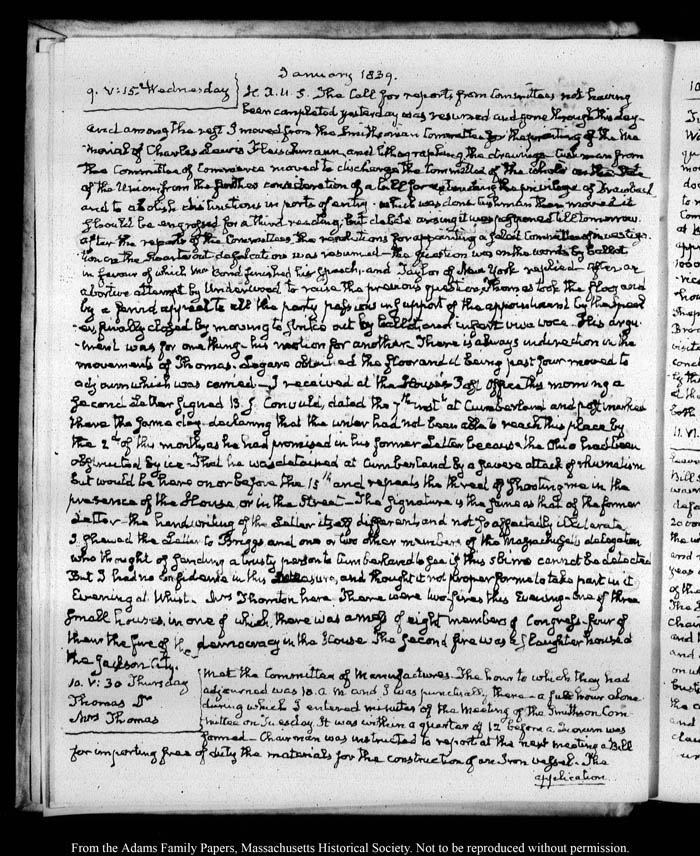 January 1839.
9. V:15. Wednesday
H. R. U. S. The Call for reports from Committees not having
been completed yesterday was resumed and gone through this day
and among the rest I moved from the Smithsonian Committee for the printing of the Me
morial of Charles Lewis Fleischmann, and lithographing the drawings. Cushman from
the Committee of Commerce moved to discharge the Committee of the whole on the State
of the Union, from the further consideration of a bill for extending the privilege of Drawback
and to abolish distinctions in ports of entry. which was done Cushman then moved it
should be engrossed for a third reading, but debate arising it was postponed till tomorrow.
After the reports of the Committees the resolutions for appointing a select Committee of investiga
tion on the Swartwout defalcations was resumed — the question was on the words by ballot
in favour of which Mr Bond finished his Speech, and Taylor of New York replied — After an
abortive attempt by Underwood to raise the previous question, Thomas took the floor, and
by a fervid appeal to all the party passions in support of the appointment by the Speak
er, finally closed by moving to strike out by ballot, and insert viva voce. His argu
ment was for one thing — his motion for another. There is always indirection in the
movements of Thomas. Legare obtained the floor and it being past four moved to
adjourn which was carried — I received at the House's Post Office this morning a
second Letter signed B. J. Converse, dated the 7th inst at Cumberland and post marked
there the same day. declaring that the writer had not been able to reach this place by
the 2d of the month, as he had promised in his former Letter because the Ohio had been
obstructed by ice — That he was detained at Cumberland by a severe attack of rheumatism
but would be here on or before the 15th and repeats the threat of shooting me in the
presence of the House, or in the Street — The signature is the same as that of the former
Letter — the hand writing of the Letter itself different, and not so affectedly illiterate
I shewed the Letter to Briggs and one or two other members of the Massachusetts delegation
who thought of sending a trusty person to Cumberland to see if this cannot be detected
But I had no confidence in this measure, and thought it not proper for me to take part in it
Evening at Whist. Mrs Thornton here. There were two fires this Evening — one of three
small houses, in one of which there was a mess of eight members of Congress — four of
them the fire of the democracy in the House The second fire was a slaughter house at
the Jackson City.
10. V:30 Thursday
Thomas Dr
Mrs Thomas
Met the Committee of Manufactures. The hour to which they had
adjourned was 10. a. m. and I was punctually there — a full hour alone
during which I entered minutes of the Meeting of the Smithson Com
mittee on Tuesday. It was within a quarter of 12 before a Quorum was
formed — Chairman was instructed to report at the next meeting a Bill
for importing free of duty the materials for the construction of an Iron vessel. The
application
From the Adams Family Papers, Massachusetts Historical Society. Not to be reproduced without permission.